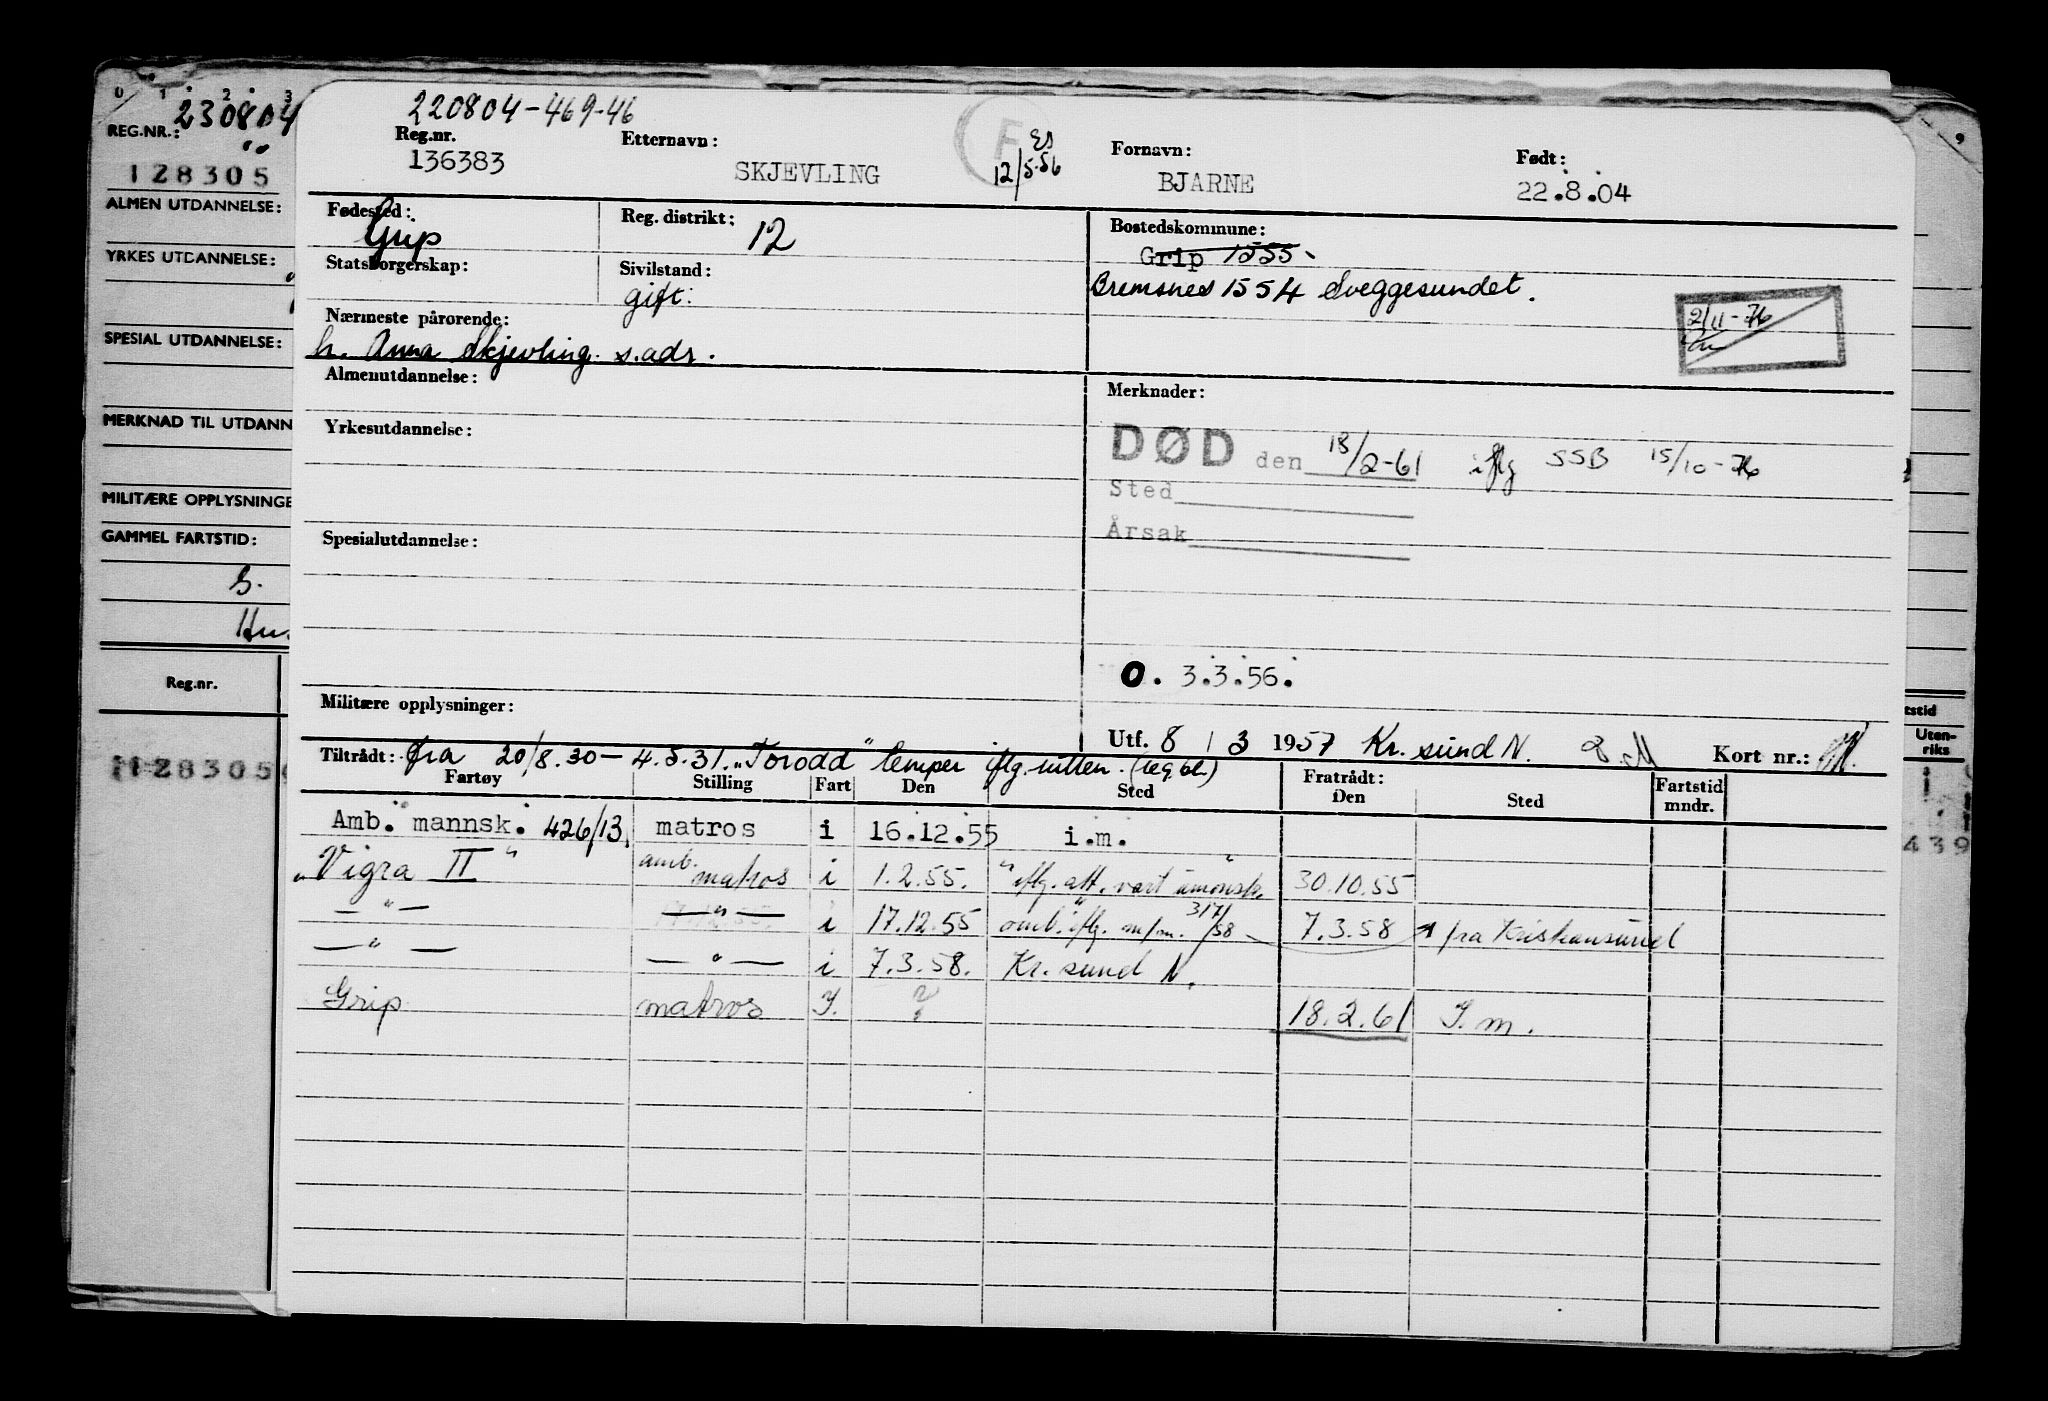 0 1 2 3
230804
REG.NR.:
128305
ALMEN UTDANNELSE:
YRKES UTDANNELSE:
SPESIAL UTDANNELSE:
MERKNAD TIL UTDANN
MILITÆRE OPPLYSNINGE
GAMMEL FARTSTID:
Reg.nr.
128305
220804-469-46
Reg.nr. Etternavn: Fornavn: Født:
136383 SKJEVLING F 12/5.56 BJARNE 22.8.04
Fødested: Grip Reg. distrikt: 12 Bostedskommune:
Grip 1555
Statsborgerskap: Sivilstand: gift. Bremsnes 1554 Sveggesundet.
2/11-76
Nærmeste pårørende:
h. Anna Skjevling. s.adr.
Almenutdannelse: Merknader:
Yrkesutdannelse:
DØD den 18/2-61 iflg SSB 15/10-76
Sted
Årsak
Spesialutdannelse:
O. 3.3.56.
Militære opplysninger:
Utf. 8 / 3 1957 Kr. sund N. Kort nr.:
Tiltrådt: fra 20/8.30 - 4.5.31. "Torodd" iflg.
Fartøy Stilling Fart Den Sted Fratrådt: Den Sted Fartstid mndr.
Amb. mannsk. 426/13. matros i 16.12.55 i.m.
"Vigra II" amb. matros i 1.2.55. "iflg. att. vært 30.10.55
— " — — " — i 17.12.55 omb." iflg. m/m. 31/7/58 7.3.58 fra Kristiansund
— " — — " — i 7.3.58. Kr. sund N.
Grip matros I. ? 18.2.61 I.m.
9
tstid
Uten-
riks
439